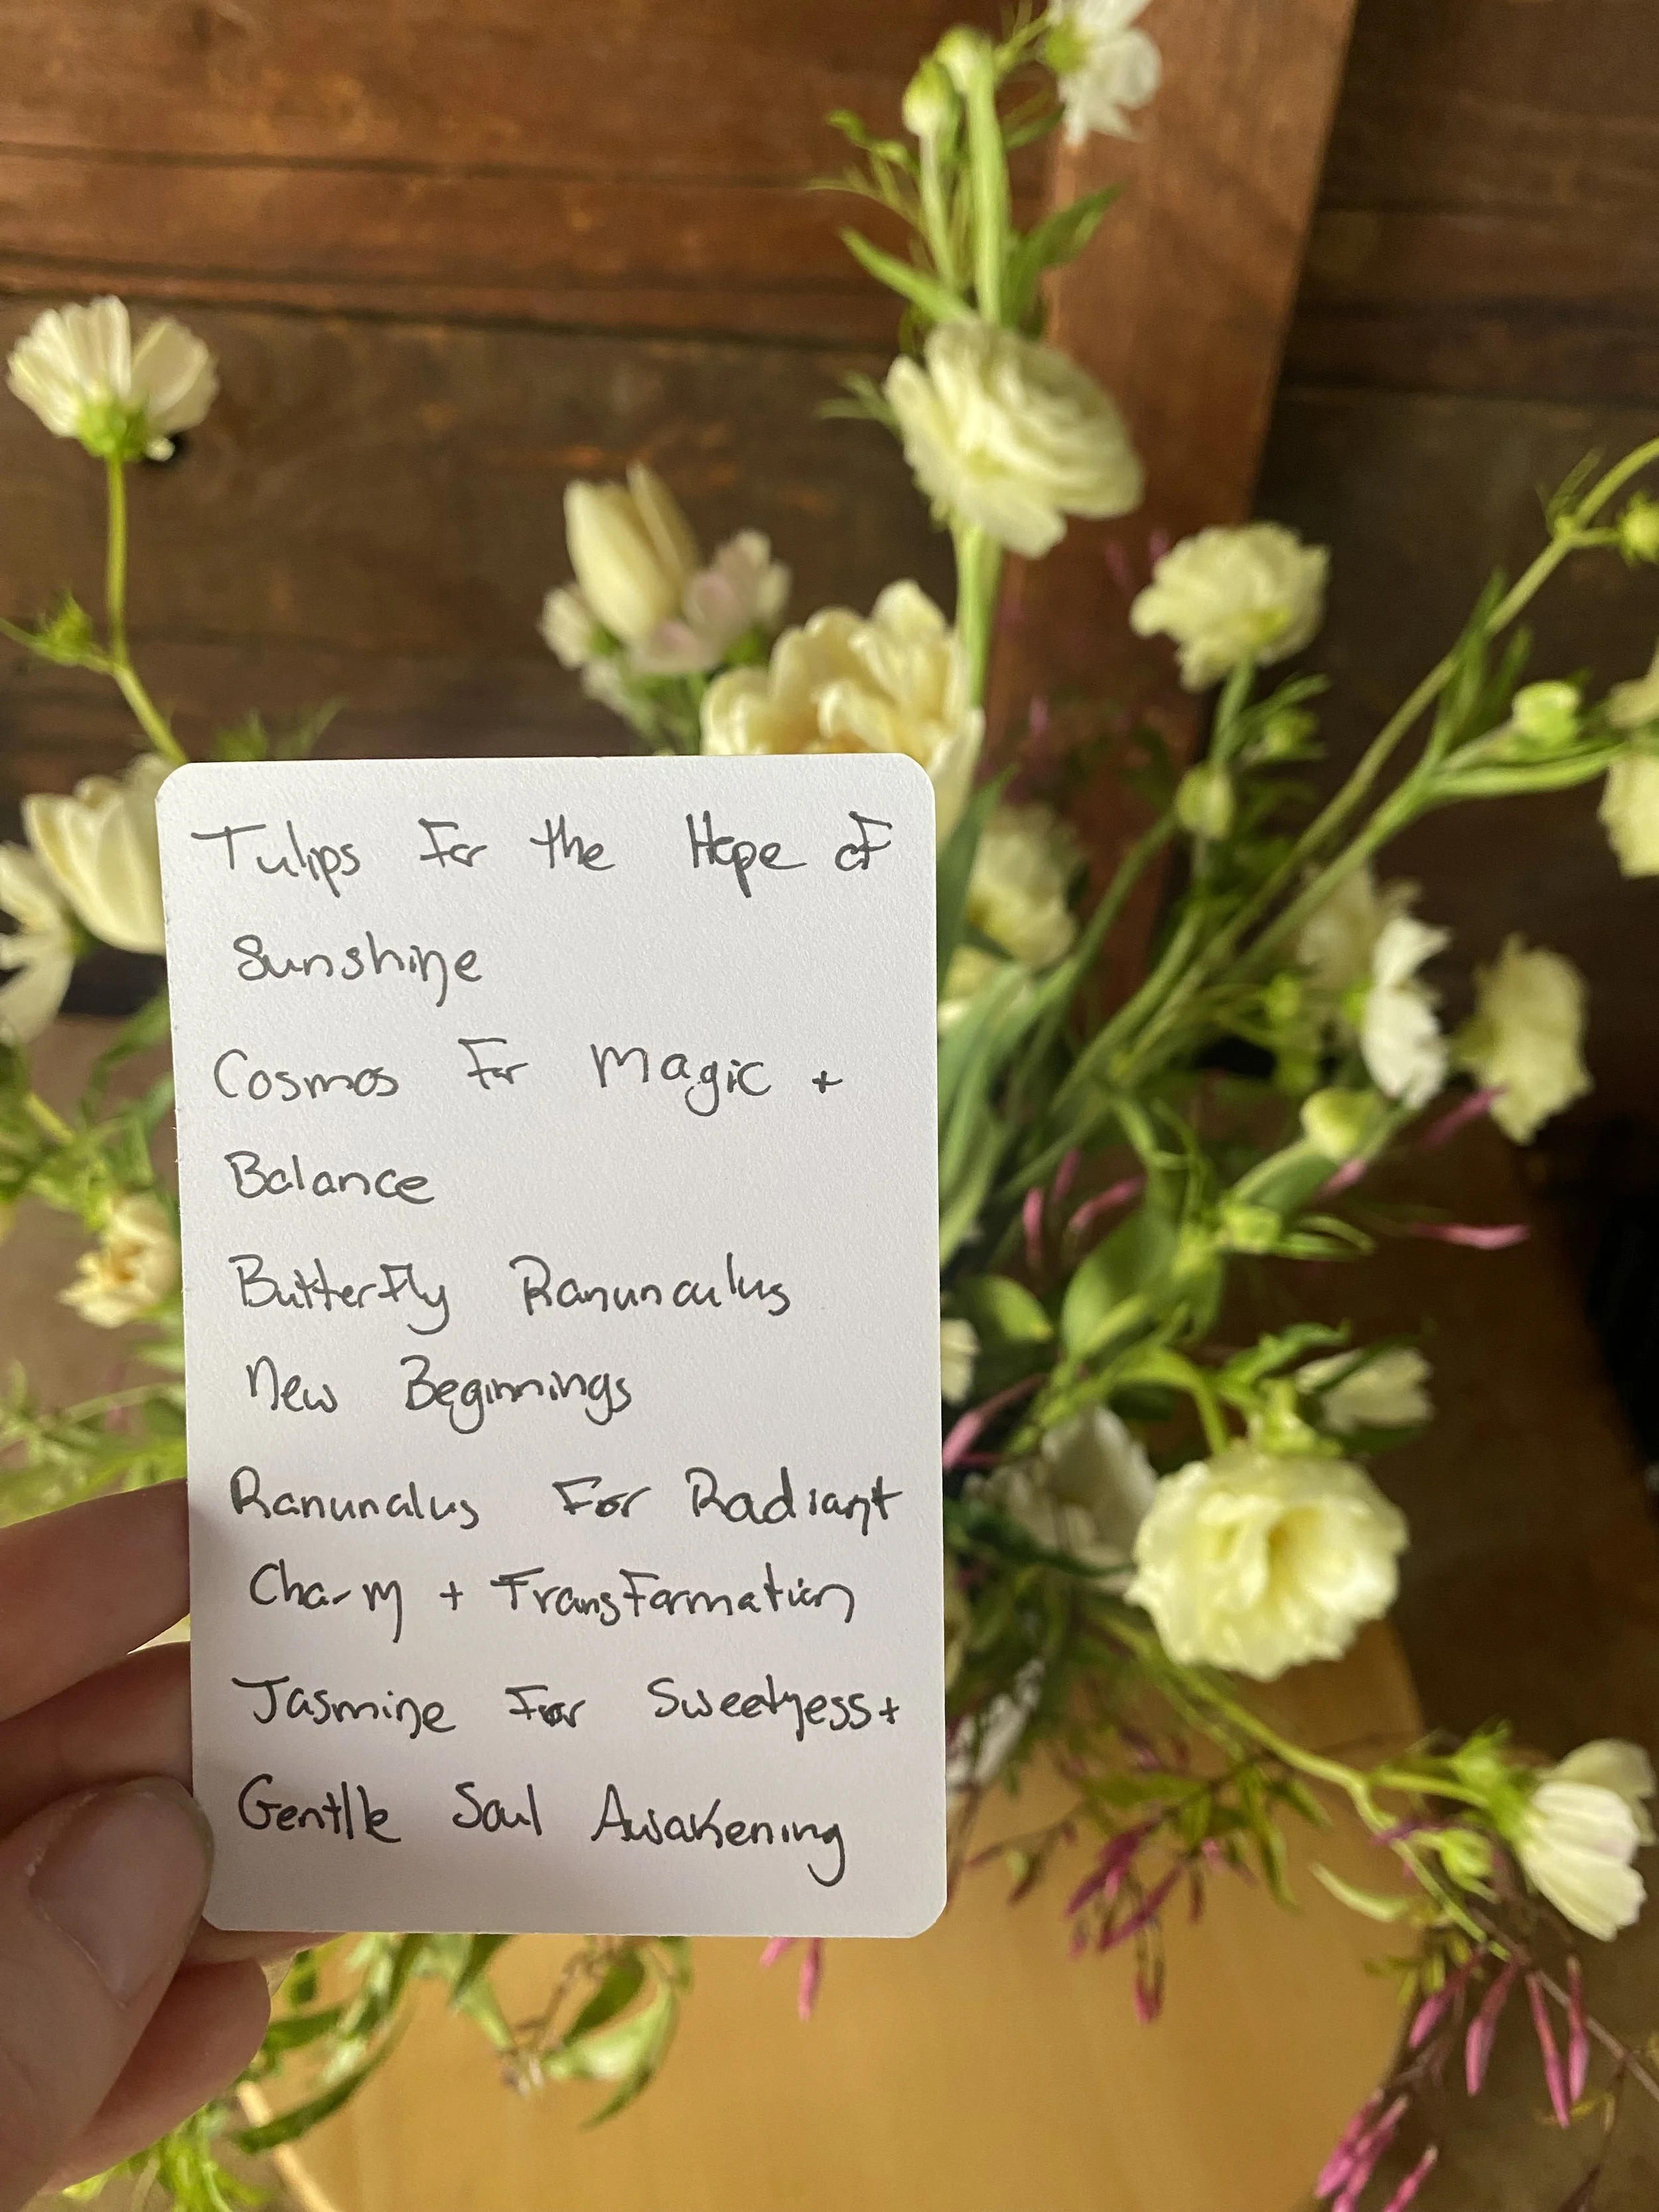 Tulips For the Hope of
Sunshine
Cosmos For Magic +
Balance
Butterfly Ranunculus
New Beginnings
Ranunalus For Radiant
Charm + Transformation
Jasmine For Sweetness+
Gentle Soul Awakening